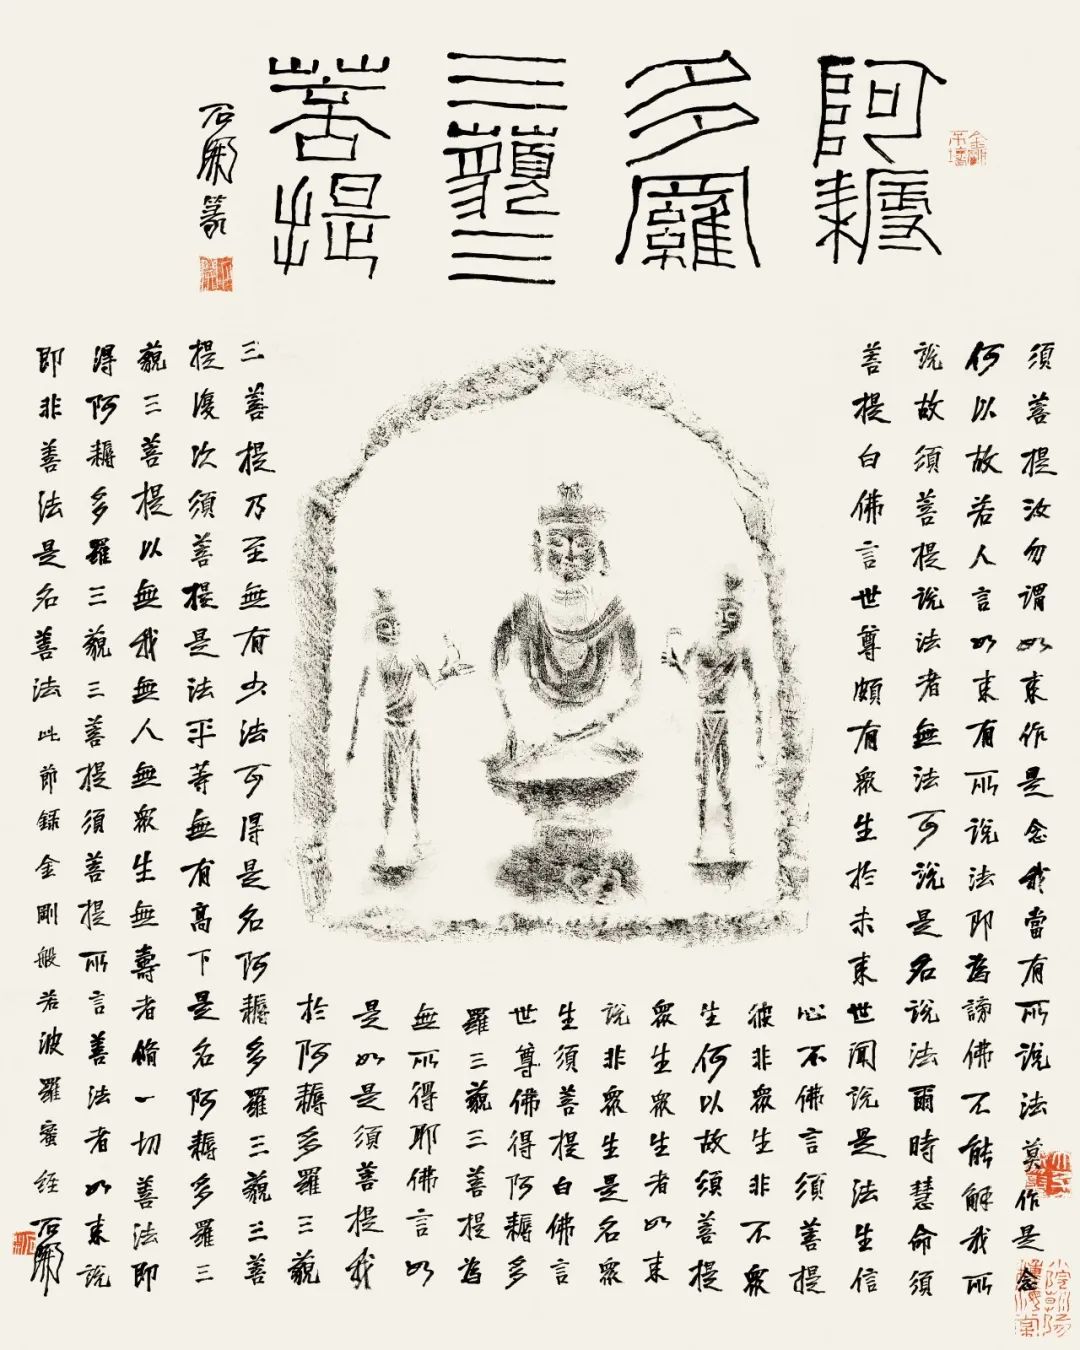 阿耨
多羅
三藐三
菩提
石開篆
須菩提汝勿謂如來作是念我當有所說法莫作是念
何以故若人言如來有所說法即為謗佛不能解我所
說故須菩提說法者無法可說是名說法爾時慧命須
菩提白佛言世尊頗有眾生於未來世聞說是法生信
心不佛言須菩提
彼非眾生非不眾
生何以故須菩提
眾生眾生者如來
說非眾生是名眾
生須菩提白佛言
世尊佛得阿耨多
羅三藐三菩提為
無所得耶佛言如
是如是須菩提我
於阿耨多羅三藐
三菩提乃至無有少法可得是名阿耨多羅三藐三菩
提復次須菩提是法平等無有高下是名阿耨多羅三
藐三菩提以無我無人無眾生無壽者脩一切善法即
得阿耨多羅三藐三菩提須菩提所言善法者如來說
即非善法是名善法此節錄金剛般若波羅蜜經
石開